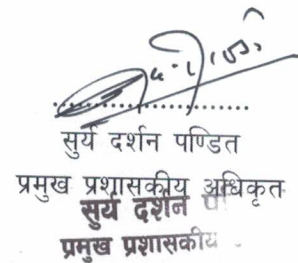 सुर्य दर्शन पण्डित
प्रमुख प्रशासकीय अधिकृत
सुर्य दर्शन
प्रमुख प्रशासकीय